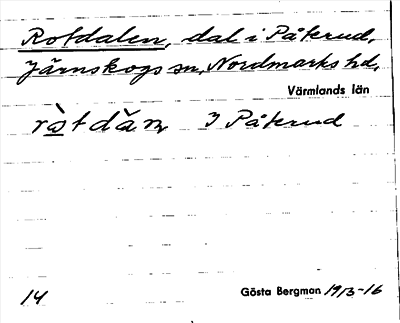 Rotdalen, dal i Påterud,
Järnskogs sn, Nordmarks hd,
Värmlands län
I Påterud
14 Gösta Bergman 1913-16